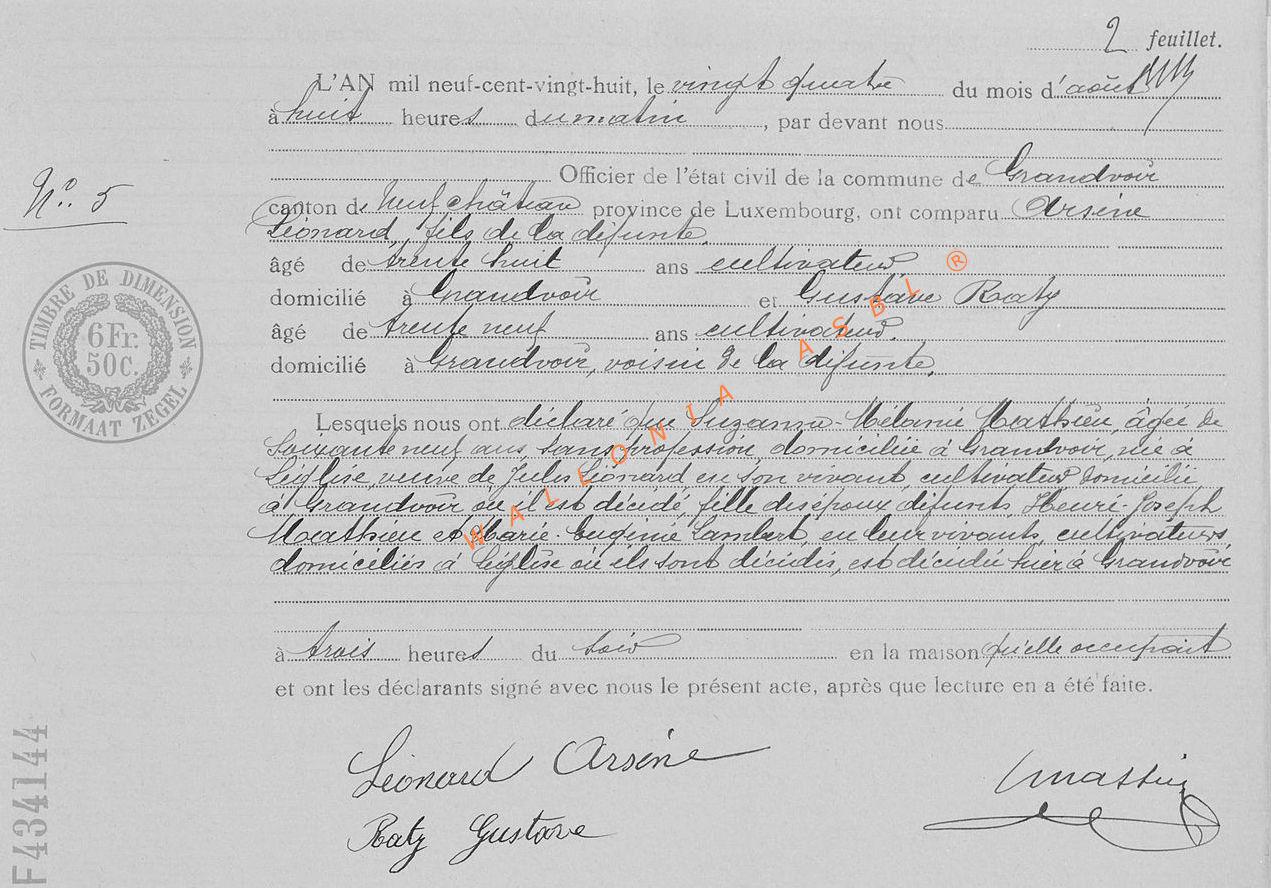 2 feuillet.
L'AN mil neuf-cent-vingt-huit, le vingt quatre du mois d'août
à huit heures du matin, par devant nous
Officier de l'état civil de la commune de Grandvoir
N° 5
canton de Neufchâteau province de Luxembourg, ont comparu Arsène
Léonard, fils de la défunte,
âgé de trente huit ans cultivateur
domicilié à Grandvoir et Gustave Raty
âgé de trente neuf ans cultivateur,
domicilié à Grandvoir, voisin de la défunte,
Lesquels nous ont déclaré que Suzanne-Mélanie Mathieu, âgée de
soixante neuf ans, sans profession, domiciliée à Grandvoir, née à
Léglise, veuve de Jules Léonard en son vivant cultivateur domicilié
à Grandvoir où il est décédé, fille des époux défunts Henri-Joseph
Mathieu et Marie-Eugénie Lambert, en leur vivants, cultivateurs,
domiciliés à Léglise où ils sont décédés, est décédée hier à Grandvoir
à trois heures du soir en la maison qu'elle occupait
et ont les déclarants signé avec nous le présent acte, après que lecture en a été faite.
Léonard Arsène
Raty Gustave
TIMBRE DE DIMENSION
6 Fr.
50 C.
FORMAAT ZEGEL
F434144
WALEONIA ASBL ®